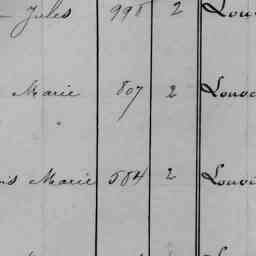 Jules 998 2 Lou
Marie 807 2 Louvo
"
is Marie 584 2 Louvi